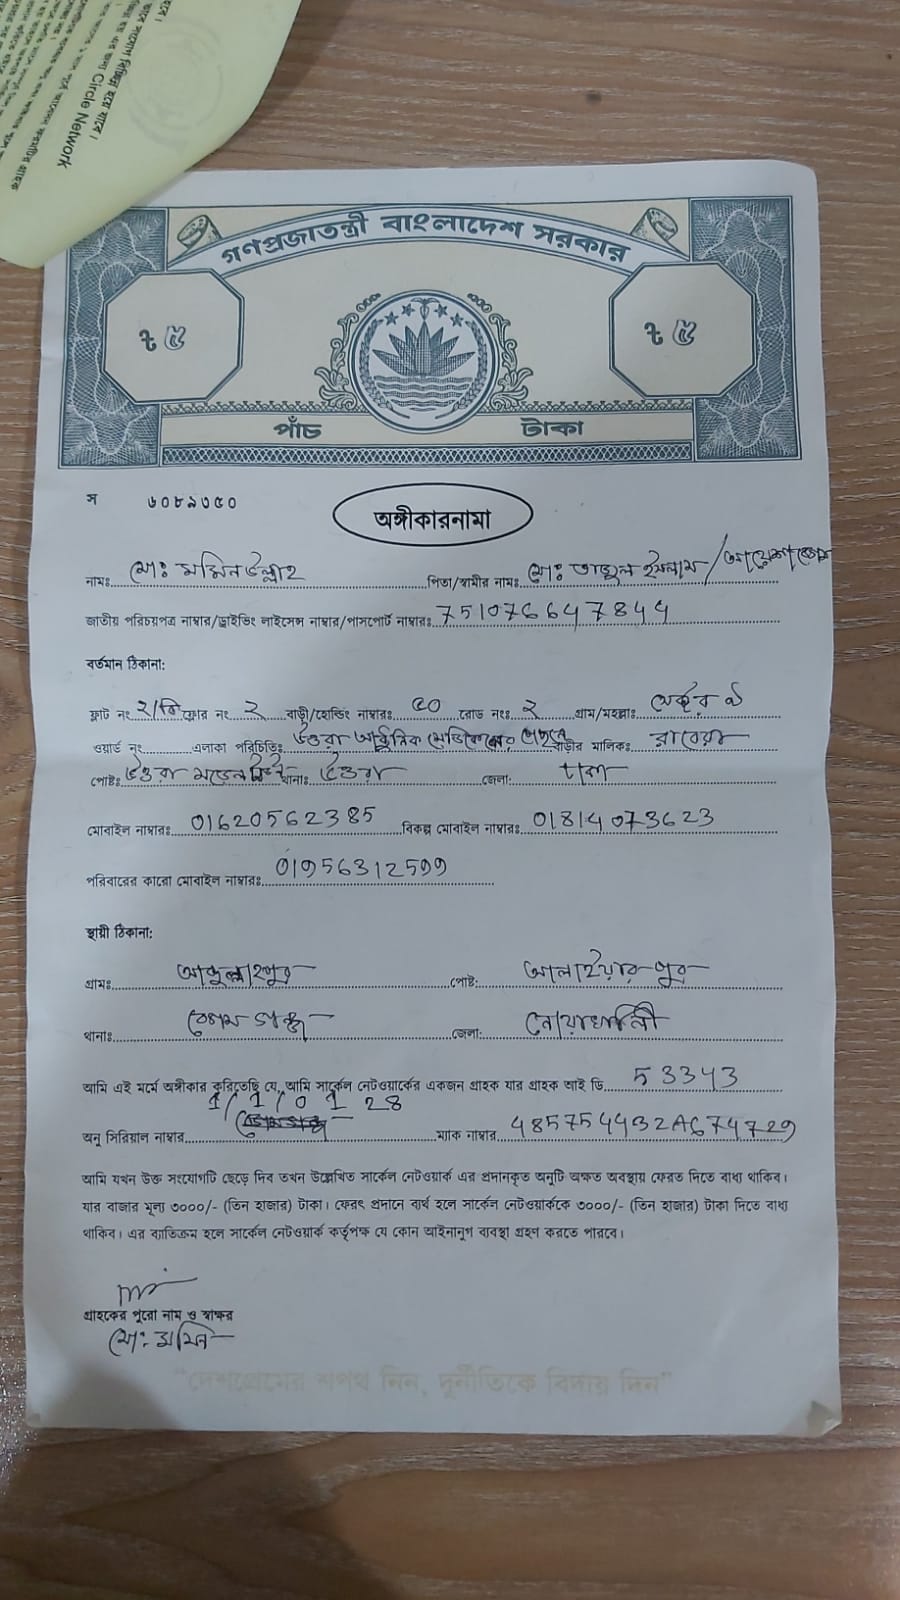 Circle Network
গণপ্রজাতন্ত্রী বাংলাদেশ সরকার
৳ ৫ ৳ ৫
পাঁচ টাকা
স ৬০৮৯৩৫০
অঙ্গীকারনামা
নামঃ মোঃ মমিন উল্লাহ পিতা/স্বামীর নামঃ মোঃ তাজুল ইসলাম /
জাতীয় পরিচয়পত্র নাম্বার/ড্রাইভিং লাইসেন্স নাম্বার/পাসপোর্ট নাম্বারঃ 7510766647844
বর্তমান ঠিকানা:
ফ্লাট নং ২/বি ফ্লোর নং ২ বাড়ী/হোল্ডিং নাম্বারঃ ৫০ রোড নংঃ ২ গ্রাম/মহল্লাঃ সেক্টর ৯
ওয়ার্ড নং এলাকা পরিচিতিঃ উত্তরা আধুনিক মেডিকেলের পেছনে বাড়ীর মালিকঃ রাবেয়া
পোষ্টঃ উত্তরা মডেল থানাঃ উত্তরা জেলা: ঢাকা
মোবাইল নাম্বারঃ 01620562385 বিকল্প মোবাইল নাম্বারঃ 01814073623
পরিবারের কারো মোবাইল নাম্বারঃ 01956312599
স্থায়ী ঠিকানা:
গ্রামঃ আব্দুল্লাহপুর পোষ্ট: আলাইয়ারপুর
থানাঃ বেগমগঞ্জ জেলা: নোয়াখালী
আমি এই মর্মে অঙ্গীকার করিতেছি যে, আমি সার্কেল নেটওয়ার্কের একজন গ্রাহক যার গ্রাহক আই ডি 53343
1/1/0 1 28
অনু সিরিয়াল নাম্বার ম্যাক নাম্বার 485754432A674729
আমি যখন উক্ত সংযোগটি ছেড়ে দিব তখন উল্লেখিত সার্কেল নেটওয়ার্ক এর প্রদানকৃত অনুটি অক্ষত অবস্থায় ফেরত দিতে বাধ্য থাকিব।
যার বাজার মূল্য ৩০০০/- (তিন হাজার) টাকা। ফেরৎ প্রদানে ব্যর্থ হলে সার্কেল নেটওয়ার্ককে ৩০০০/- (তিন হাজার) টাকা দিতে বাধ্য
থাকিব। এর ব্যতিক্রম হলে সার্কেল নেটওয়ার্ক কর্তৃপক্ষ যে কোন আইনানুগ ব্যবস্থা গ্রহণ করতে পারবে।
গ্রাহকের পুরো নাম ও স্বাক্ষর
মোঃ মমিন
"দেশপ্রেমের শপথ নিন, দুর্নীতিকে বিদায় দিন"